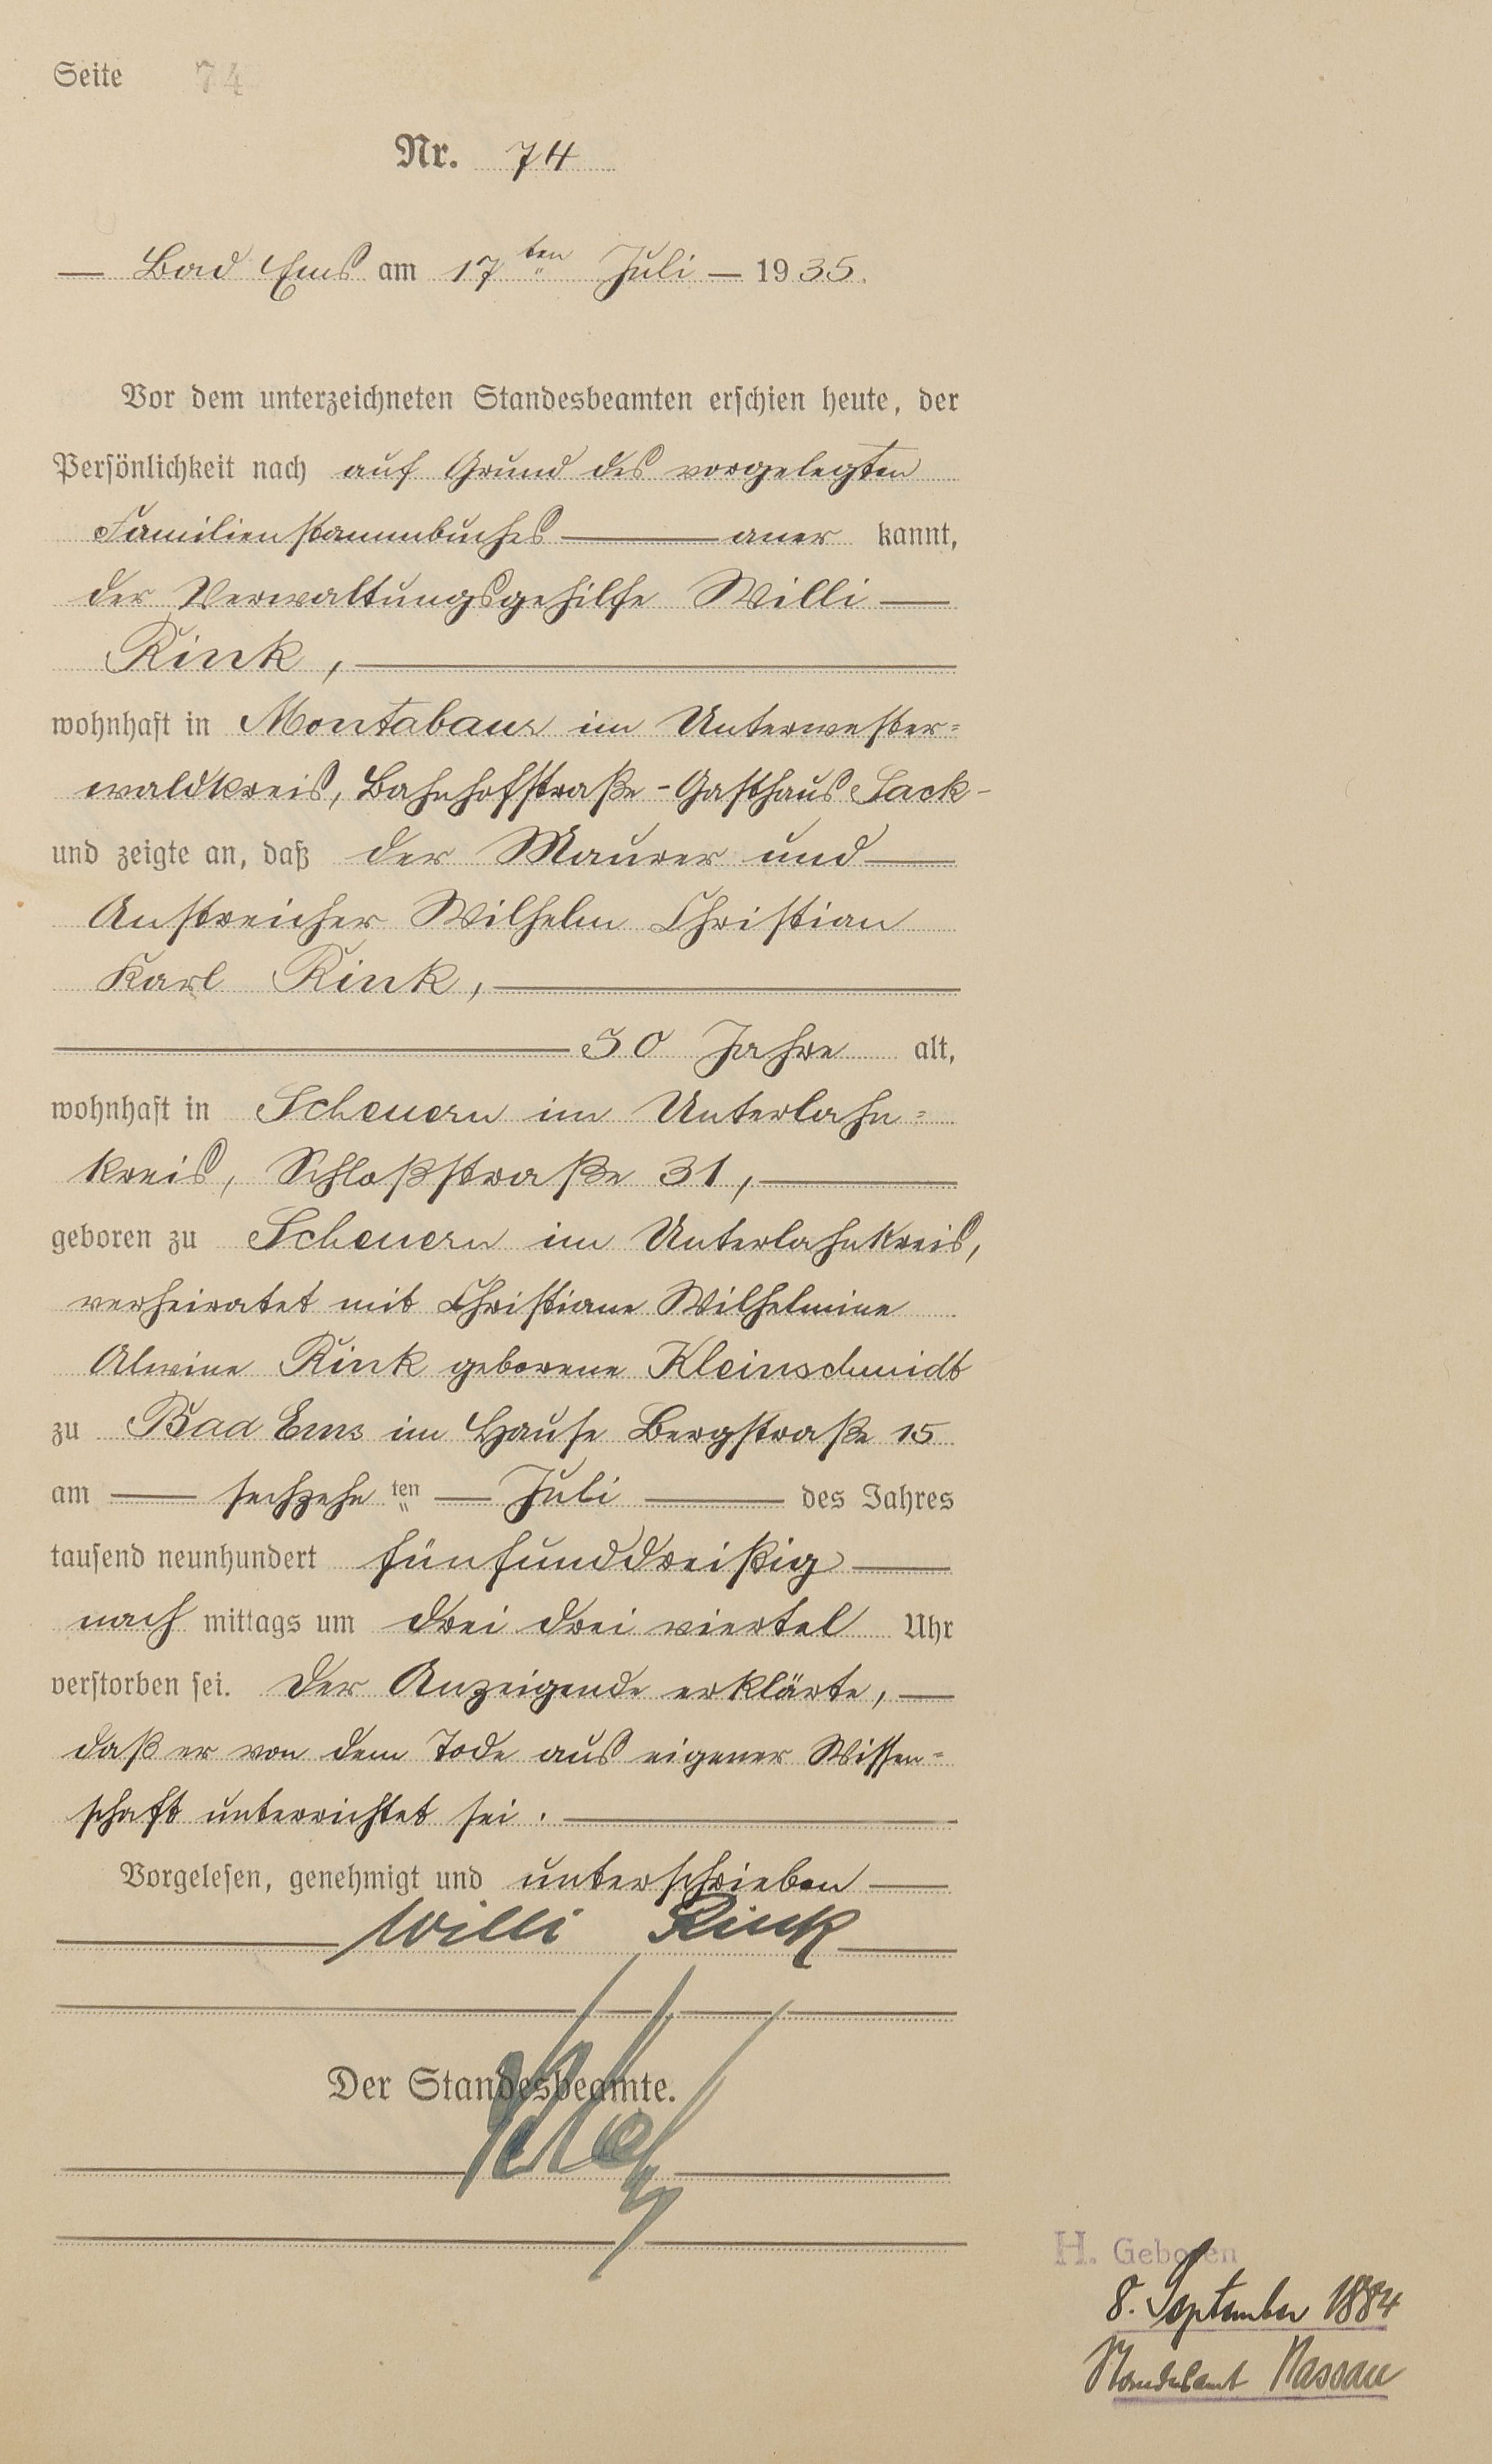 Seite 74
Nr. 74
— Bad Ems am 17ten Juli — 1935.
Vor dem unterzeichneten Standesbeamten erschien heute, der
Persönlichkeit nach auf Grund des vorgelegten
Familienstammbuches — aner kannt,
der Verwaltungsgehilfe Willi —
Rink, —
wohnhaft in Montabaur im Unterwester=
waldkreis, Bahnhofstraße - Gasthaus Sack -
und zeigte an, daß der Maurer und —
Anstreicher Wilhelm Christian
Karl Rink, —
— 50 Jahre alt,
wohnhaft in Scheuern im Unterlahn=
kreis, Schloßstraße 31, —
geboren zu Scheuern im Unterlahnkreis,
verheiratet mit Christiane Wilhelmine
Alwine Rink geborene Kleinschmidt
zu Bad Ems im Hause Bergstraße 15
am — sechzehnten — Juli — des Jahres
tausend neunhundert fünfunddreißig —
nach mittags um drei drei viertel Uhr
verstorben sei. Der Anzeigende erklärte, —
daß er von dem Tode aus eigener Wissen=
schaft unterrichtet sei. —
Vorgelesen, genehmigt und unterschrieben —
Willi Rink
Der Standesbeamte.
H. Geboren
8. September 1884
Standesamt Nassau